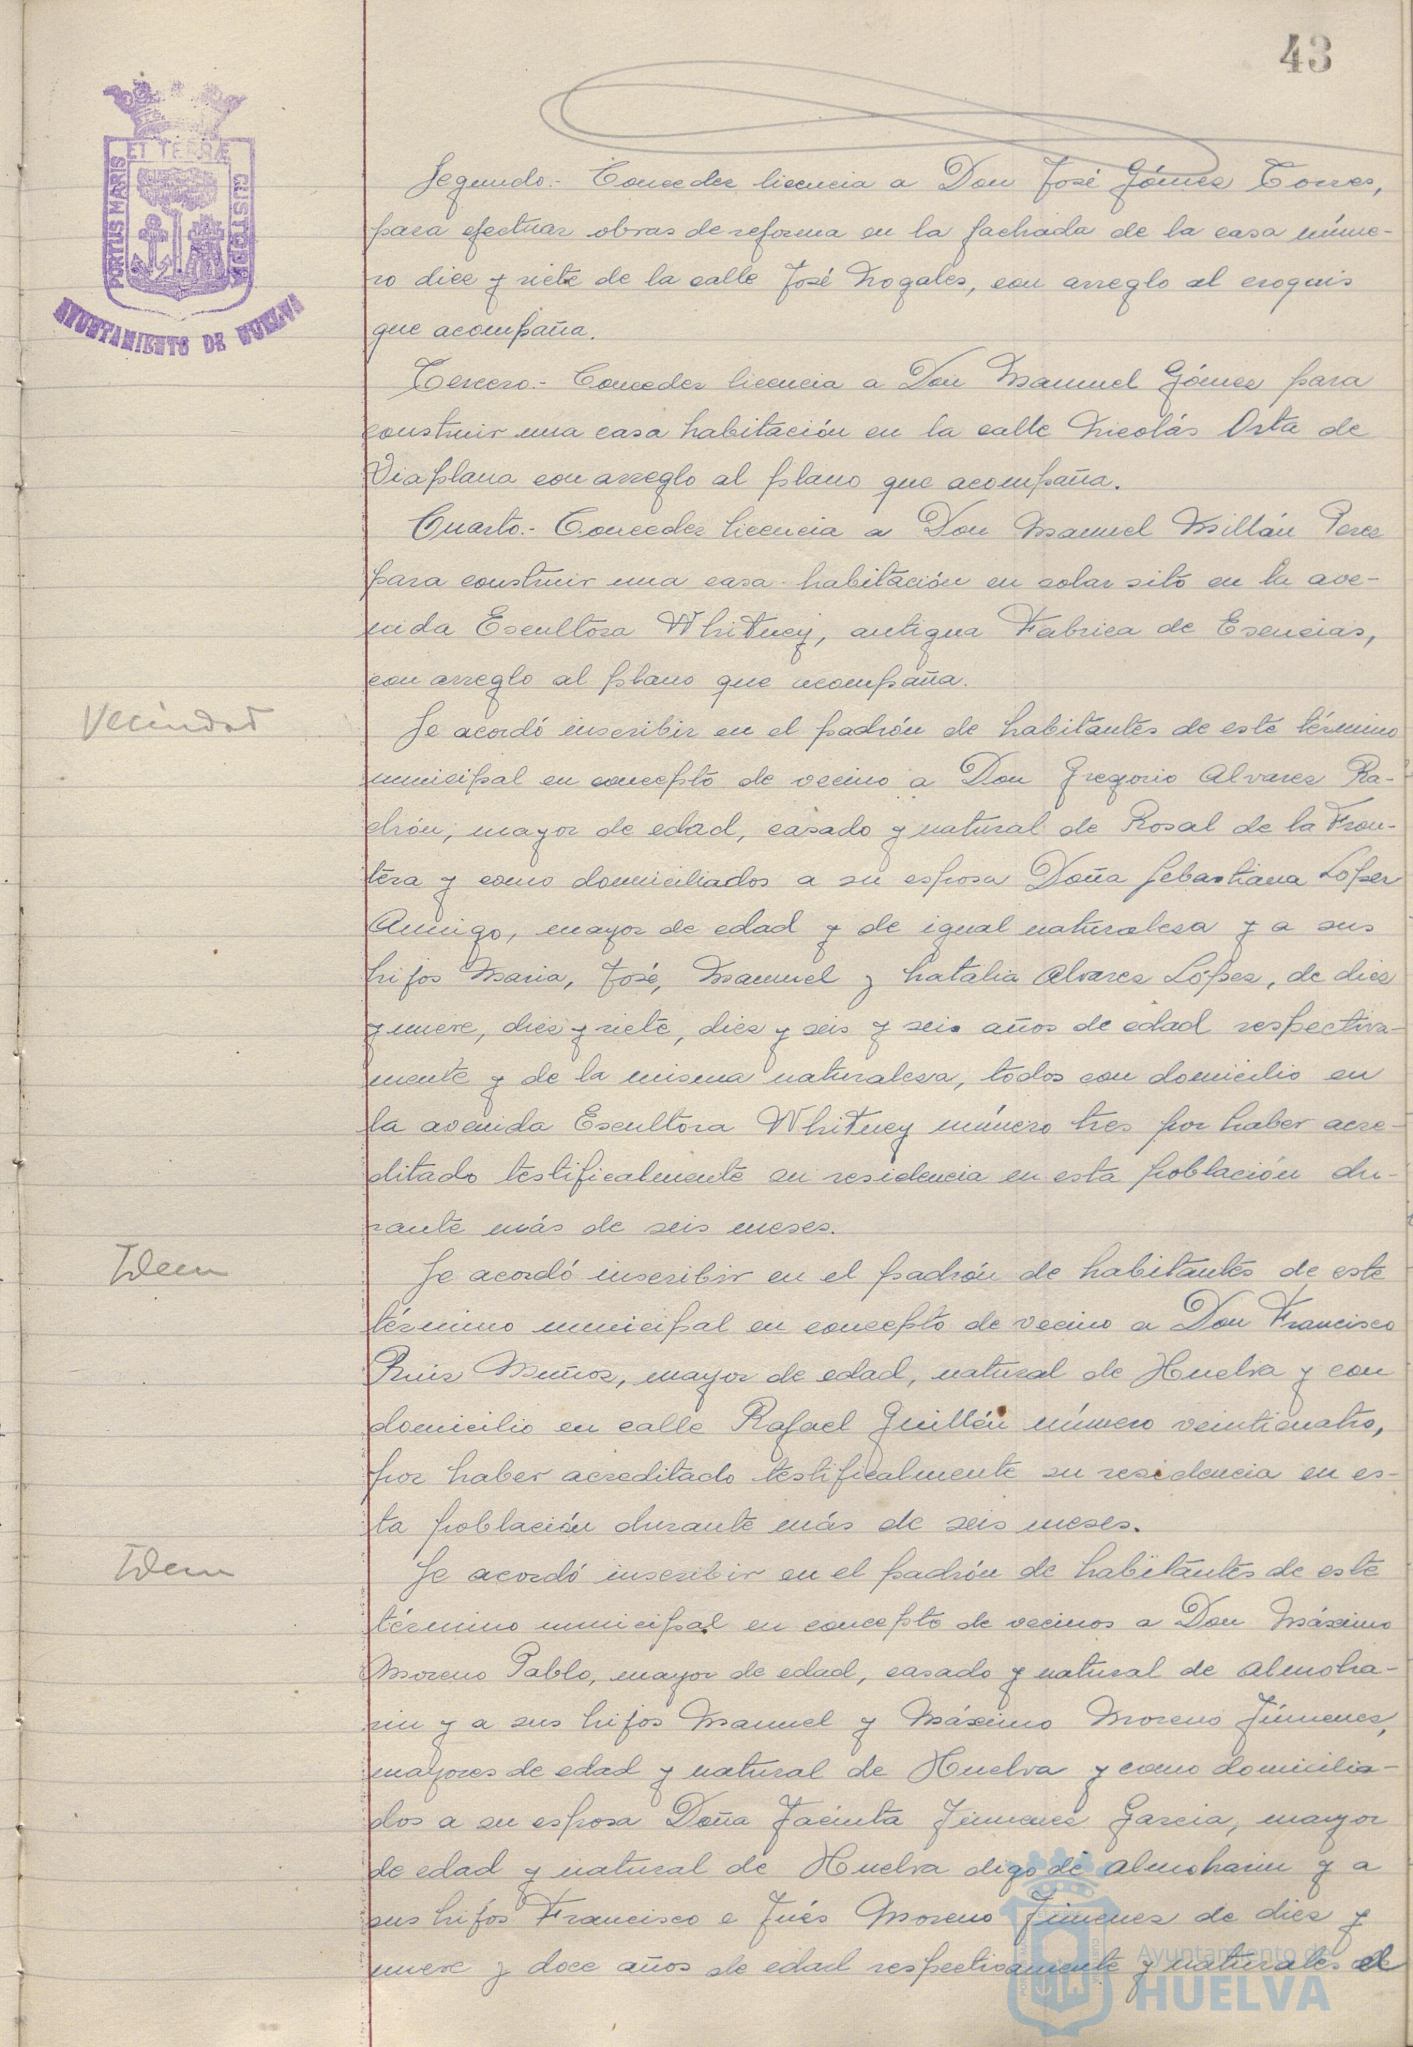 43
PORTUS MARIS ET TERRÆ CUSTODIA
AYUNTAMIENTO DE HUELVA
Segundo.- Conceder licencia a Don José Gómez Torres,
para efectuar obras de reforma en la fachada de la casa núme-
ro diez y siete de la calle José Nogales, con arreglo al croquis
que acompaña.
Tercero.- Conceder licencia a Don Manuel Gómez para
construir una casa habitación en la calle Nicolás Orta de
Viaplana con arreglo al plano que acompaña.
Cuarto.- Conceder licencia a Don Manuel Millán Perez
para construir una casa-habitación en solar sito en la ave-
nida Escultora Whitney, antigua Fabrica de Esencias,
con arreglo al plano que acompaña.
Vecindad
Se acordó inscribir en el padrón de habitantes de este término
municipal en concepto de vecino a Don Gregorio Alvarez Ra-
chón, mayor de edad, casado y natural de Rosal de la Fron-
tera y como domiciliados a su esposa Doña Sebastiana Lopez
Amigo, mayor de edad y de igual naturaleza y a sus
hijos Maria, José, Manuel y Natalia Alvarez López, de diez
y nueve, diez y siete, diez y seis y seis años de edad respectiva-
mente y de la misma naturaleza, todos con domicilio en
la avenida Escultora Whitney número tres por haber acre-
ditado testificalmente su residencia en esta población du-
rante más de seis meses.
Idem
Se acordó inscribir en el padrón de habitantes de este
término municipal en concepto de vecino a Don Francisco
Ruiz Muñoz, mayor de edad, natural de Huelva y con
domicilio en calle Rafael Guillén número veinticuatro,
por haber acreditado testificalmente su residencia en es-
ta población durante más de seis meses.
Idem
Se acordó inscribir en el padrón de habitantes de este
término municipal en concepto de vecinos a Don Máximo
Moreno Pablo, mayor de edad, casado y natural de Almoha-
rin y a sus hijos Manuel y Máximo Moreno Jimenez,
mayores de edad y natural de Huelva y como domicilia-
dos a su esposa Doña Jacinta Jimenez Garcia, mayor
de edad y natural de Huelva digo de Almoharin y a
sus hijos Francisco e Inés Moreno Jimenez de diez y
nueve y doce años de edad respectivamente y naturales de
Ayuntamiento de
HUELVA